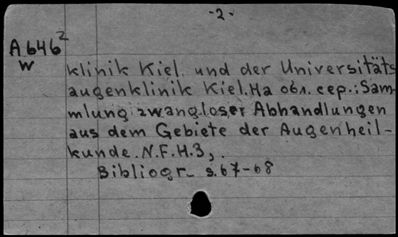 -2-
A646²
W
klinik Kiel. und der Universitäts
augenklinik Kiel. На обл. сер.: Sam-
mlung zwangloser Abhandlungen
aus dem Gebiete der Augenheil-
kunde. N.F. H.3, .
Bibliogr. s. 67-68